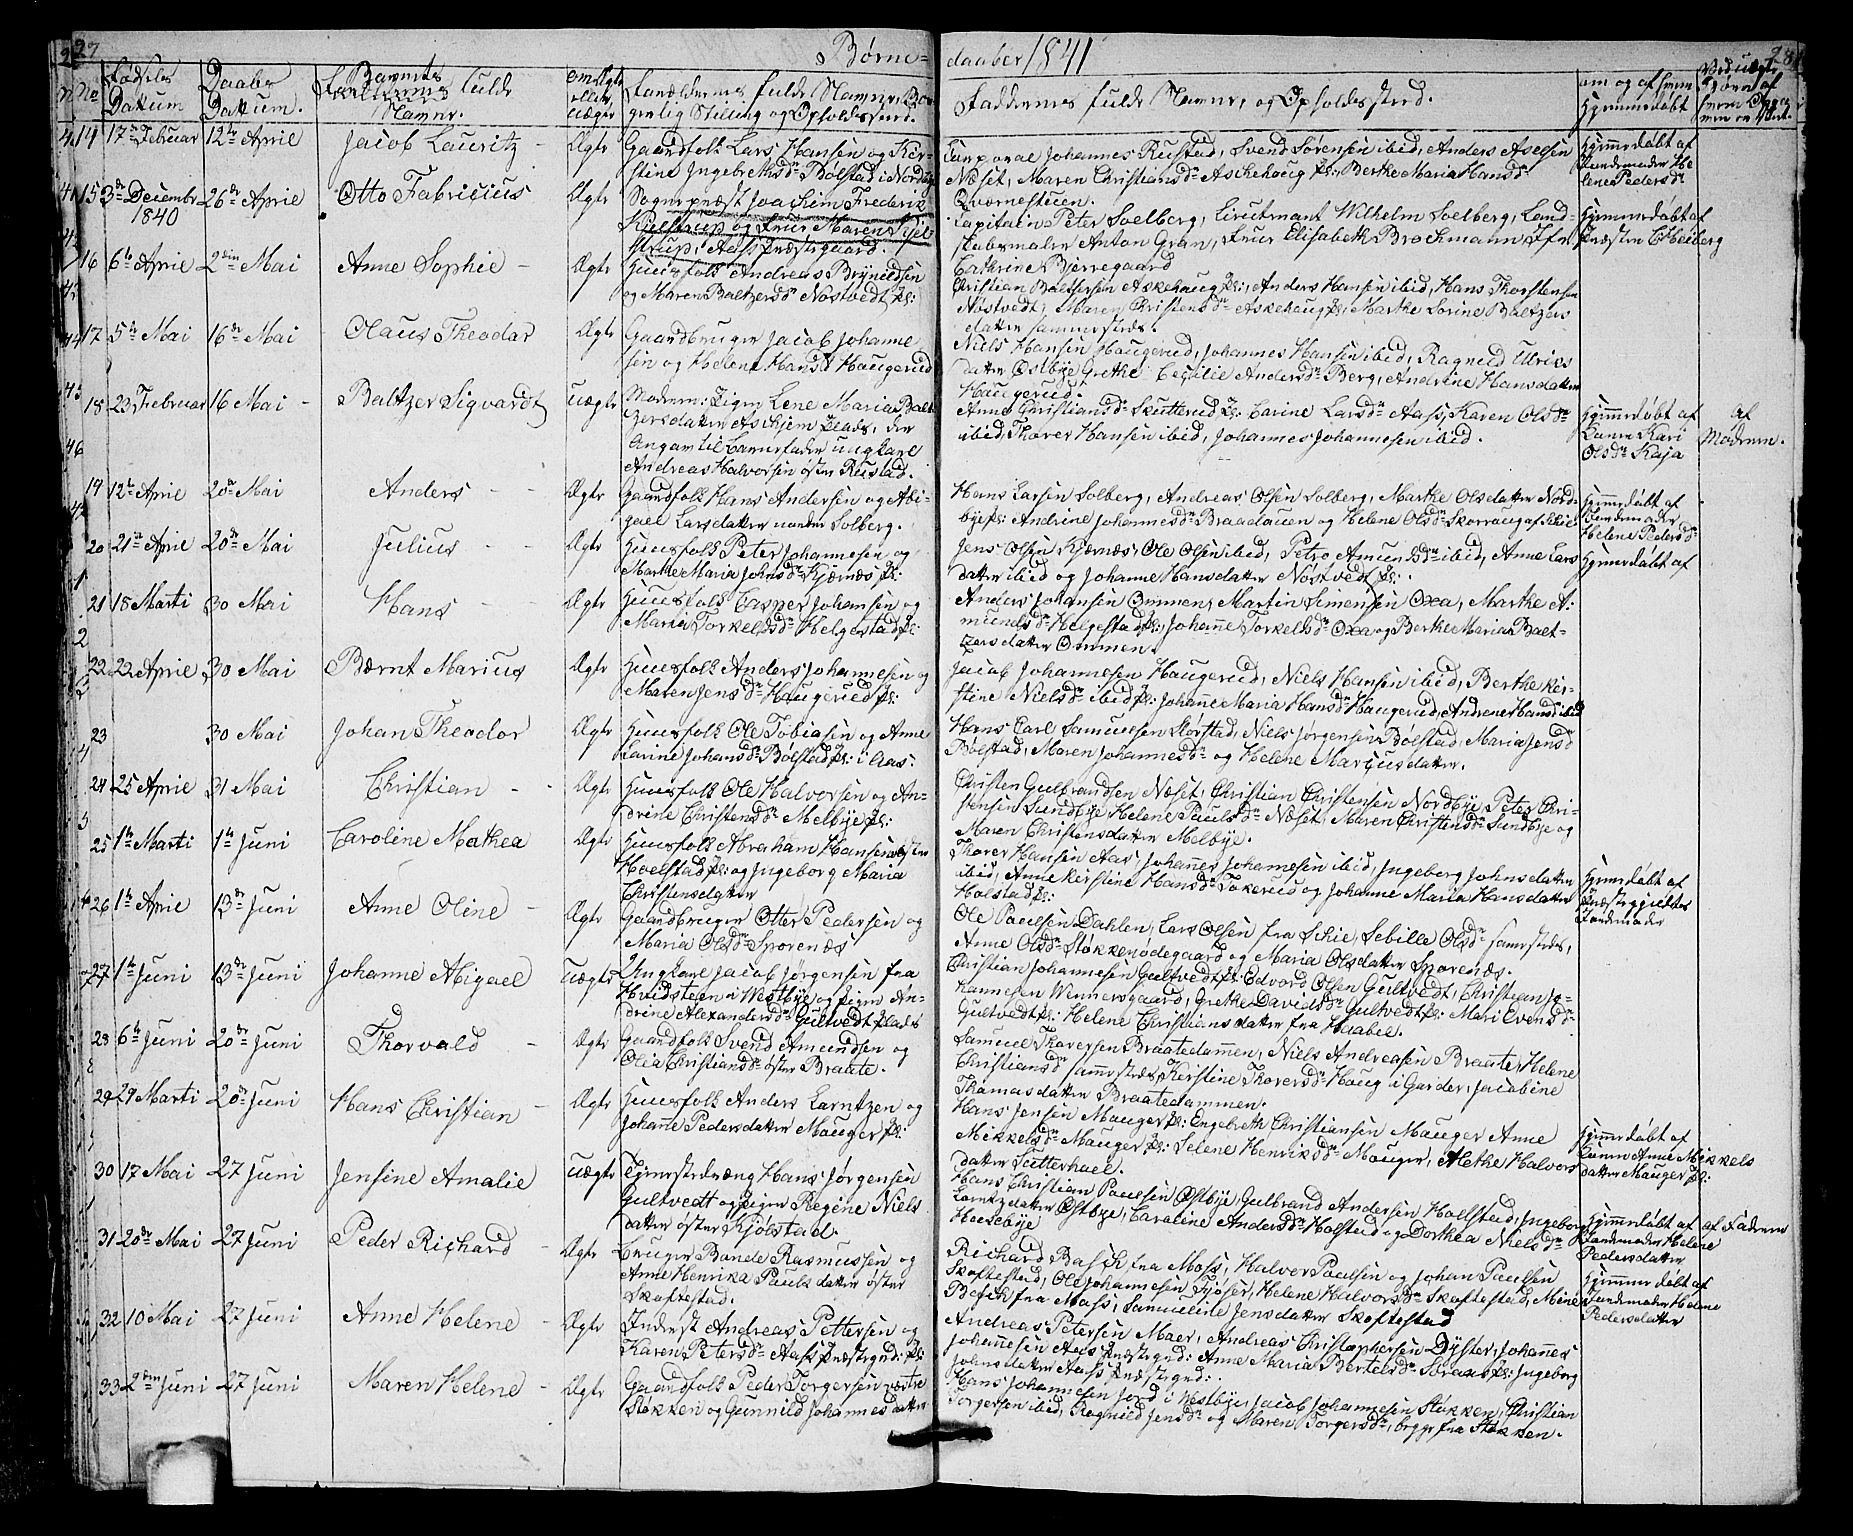 27
Børne-
daaber 1841
28
No
Fødsels Datum
Daabs Datum.
Barnets fulde Navne.
om Ægte eller Uægte
Forældrenes fulde Navne, Borgerlig Stilling og Opholdssted.
Faddernes fulde Navne, og Opholdssted.
om og af hvem hjemmedøbt
14 17de Februar 12te April Jacob Lauritz - Ægte Gaardfolk Lars Hansen og Kir-
stine Ingebrethsdr Bølstad i Nordby
Corporal Johannes Rustad, Svend Sørensen ibid, Anders Axelsen
Næset, Maren Christiansdr Askehaug pl: Berthe Maria Hansdr
Qværnestuen.
hjemmedøbt af
Jordemoder He-
lene Pedersdr
15 3de Decembr 1840 26de April Otto Fabricius Ægte Sognepræst Joachim Frederik
Kjelstrup og Frue Maren Kjel-
strup, Aas Præstegaard.
Capitain Peter Soelberg, Lieutnant Wilhelm Soelberg, Land-
skabsmaler Anton Gran, Frue Elisabeth Brochmann, Jfr
Cathrine Bjerregaard
hjemmedøbt af
Præsten C Heiberg
16 6te April 2den Mai Anne Sophie - Ægte Huusfolk Andreas Brynildsen
og Maren Baltzersdr Nøstvedt pl:
Christian Baltsersen Askehaug pl:, Anders Hansen ibid, Hans Thorstensen
Nøstvedt, Maren Christensdr Askehaug pl: Marthe Sorine Baltzers
datter sammesteds.
17 5te Mai 16de Mai Olaus Theodor Ægte Gaardbruger Jacob Johanne
sen og Helene Hansdr Haugerud
Niels Hansen Haugerud, Johannes Hansen ibid, Ragnild Ulriks
datter Østbye Grethe Cecilie Andersdr Berg, Andrine Hansdatter
Haugerud.
18 23 Februar 16 Mai - Baltzer Sigvardt Uægte Moderen: Pigen Lene Maria Balt
zersdatter Askjem Plads, der
Angav til Barnefader ungkarl
Andreas Halvorsen øster Rustad.
Anne Christiansdr Skutterud pl: Carine Larsdr Aass, Karen Olsdr
ibid, Thorer Hansen ibid, Johannes Johannesen ibid.
hjemmedøbt af
Konen Kari
Olsdr Kaja
af
Moderen.
19 12te April 20de Mai Anders - - Ægte Gaardfolk Hans Andersen og Abi-
gael Larsdatter nordre Solberg.
Hans Larsen Solberg, Andreas Olsen Solberg, Marthe Olsdatter Nord-
bye pl: Andrine Johannesdr Braadauen og Helene Olsdr Skorraug af Schie
hjemmedøbt af
Jordemoder
Helene Pedersdr
20 21de April 20de Mai Julius - - Ægte Huusfolk Peter Johannesen og
Marthe Maria Johnsdr Kjærnæs pl:
Jens Olsen Kjærnæs, Ole Olsen ibid, Petro Amundsdr ibid, Anne Lars
datter ibid og Johanne Hansdatter Nøstvedt pl:.
hjemmedøbt af
21 18 Marti 30 Mai Hans - Ægte Huusfolk Casper Johansen og
Maria Torkelsdr Helgestad pl:
Anders Johansen Ommen, Martin Simensen Oxa, Marthe A-
mundsdr Helgestad pl:, Johanne Torkelsdr Oxa og Berthe Maria Balt-
zersdatter Ommen.
22 22 April 30 Mai Bærnt Marius Ægte Huusfolk Anders Johannesen og
Maren Jensdr Haugerud pl:
Jacob Johannesen Haugerud, Niels Hansen ibid, Berthe Kir-
stine Nielsdr ibid pl: Johanne Maria Hansdr Haugerud, Andrene Hansdr ibid
23 30 Mai Johan Theodor Ægte Huusfolk Ole Tobiasen og Anne
Karine Johansdr Bølstad pl: i Aas.
Hans Carl Samuelsen Børstad, Niels Jørgensen Bølstad, Maria Jensdr
Bølstad, Maren Johannesdr og Helene Marcusdatter.
24 25 April 31 Mai Christian - - Ægte Huusfolk Ole Halvorsen og An-
drine Christensdr Melbye pl:
Christen Gulbrandsen Næset, Christian Christensen Nordbye, Peter Chri-
stensen Sundbye, Helene Paulsdr Næset, Maren Christensdr Sundbye og
Maren Christensdatter Melbye.
25 1te Marti 1te Juni Caroline Mathea Ægte Huusfolk Abraham Hansen østre
Hoelstad pl: og Ingeborg Maria
Christensdatter
Thorer Hansen Aas, Johannes Johannesen ibid, Ingeborg Johnsdatter
ibid, Anne Kirstine Hansdr Tokerud og Johanne Maria Hansdatter
Holstad pl:
hjemmedøbt af
Præstegjeldets
Jordemoder
26 1te April 13de Juni Anne Oline - Ægte Gaardbruger Otter Pedersen og
Maria Olsdr Sporenæs
Ole Paulsen Dahlen, Lars Olsen fra Schie, Sebille Olsdr sammesteds,
Anne Olsdr Støkkenødegaard og Maria Olsdatter Sporenæs.
27 1te Juni 13de Juni Johanne Abigael Uægte Ungkarl Jacob Jørgensen fra
Hvidsteen i Westbye og pigen An-
drine Alexandersdr Gultvedt Plads
Christian Johannesen Gultvedt pl: Edvord Olsen Gultvedt, Christian Jo-
hannesen Wennersgaard, Grethe Davidsdr Gultvedt pl: Mari Evensdr
Gultvedt pl: Helene Christiansdatter fra Haabel.
28 6te Juni 20de Juni Thorvald - Ægte Gaardfolk Svend Amundsen og
Olea Christiansdr øster Braate.
Samuel Thorersen Braatedammen, Niels Andreasen Braate, Helene
Christiansdr sammesteds, Kirstine Thorersdr Haug i Garder, Jacobine
Thomasdatter Braatedammen.
29 29 Marti 20de Juni Hans Christian - Ægte Huusfolk Anders Larntzen og
Johanne Pedersdatter Mauger pl:
Hans Jensen Mauger pl: Engebreth Christiansen Mauger Anne
Mikkelsdr Mauger pl: Selene Henriksdr Mauger, Alethe Halvors
datter Sutterhoel.
hjemmedøbt af
Konen Anne Mikkels
datter Mauger pl:
30 17 Mai 27 Juni Jensine Amalie Uægte Tjenestedreng Hans Jørgensen
Gultvedt og pigen Regine Niels
datter øster Kjølstad.
Hans Christian Paulsen Østbye, Gulbrand Andersen Hoelstad, Ingeborg
Larntzdatter Østbye, Caroline Andersdr Holstad og Dorthea Nielsdr
Hoelebye
hjemmedøbt af
Jordemoder Helene
Pedersdatter
af Faderen
31 20de Mai 27 Juni Peder Richard - Ægte Bruger Bonde Rasmussen og
Anne Henrika Paulsdatter øster
Skoftestad.
Richard Basch fra Moss, Halvor Paulsen og Johan Paulsen
Skoftestad, Ole Johannesen Tjøser, Helene Halvorsdr Skoftestad, Mine
Basch fra Moss, Samueline Jensdatter Skoftestad
hjemmedøbt af
Jordemoder Helene
Pedersdatter
32 10 Mai 27 Juni Anne Helene - Ægte Inderst Andreas Pettersen og
Karen Petersdr Aass Præstegrd: pl:
Andreas Petersen Moer, Andreas Christophersen Dyster, Johannes
Johannesen Aas Præstegrd: Anne Maria Bertelsdr Soraas pl: Ingeborg
Johnsdatter Aass Præstegrd:.
33 2den Juni 27 Juni Maren Helene - Ægte Gaardfolk Peder Torgersen vestre
Støkken og Gunnild Johannesdatter
Hans Johannesen Jord i Westbye, Jacob Johannesen Støkken, Christian
Torgersen ibid, Ragnild Jensdr og Maren Torgersdr, begge fra Støkken.